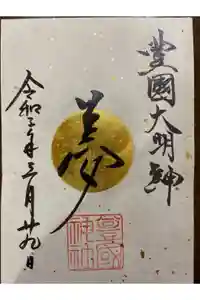 豐國大明神
夢
豐國神社
令和三年三月廿九日